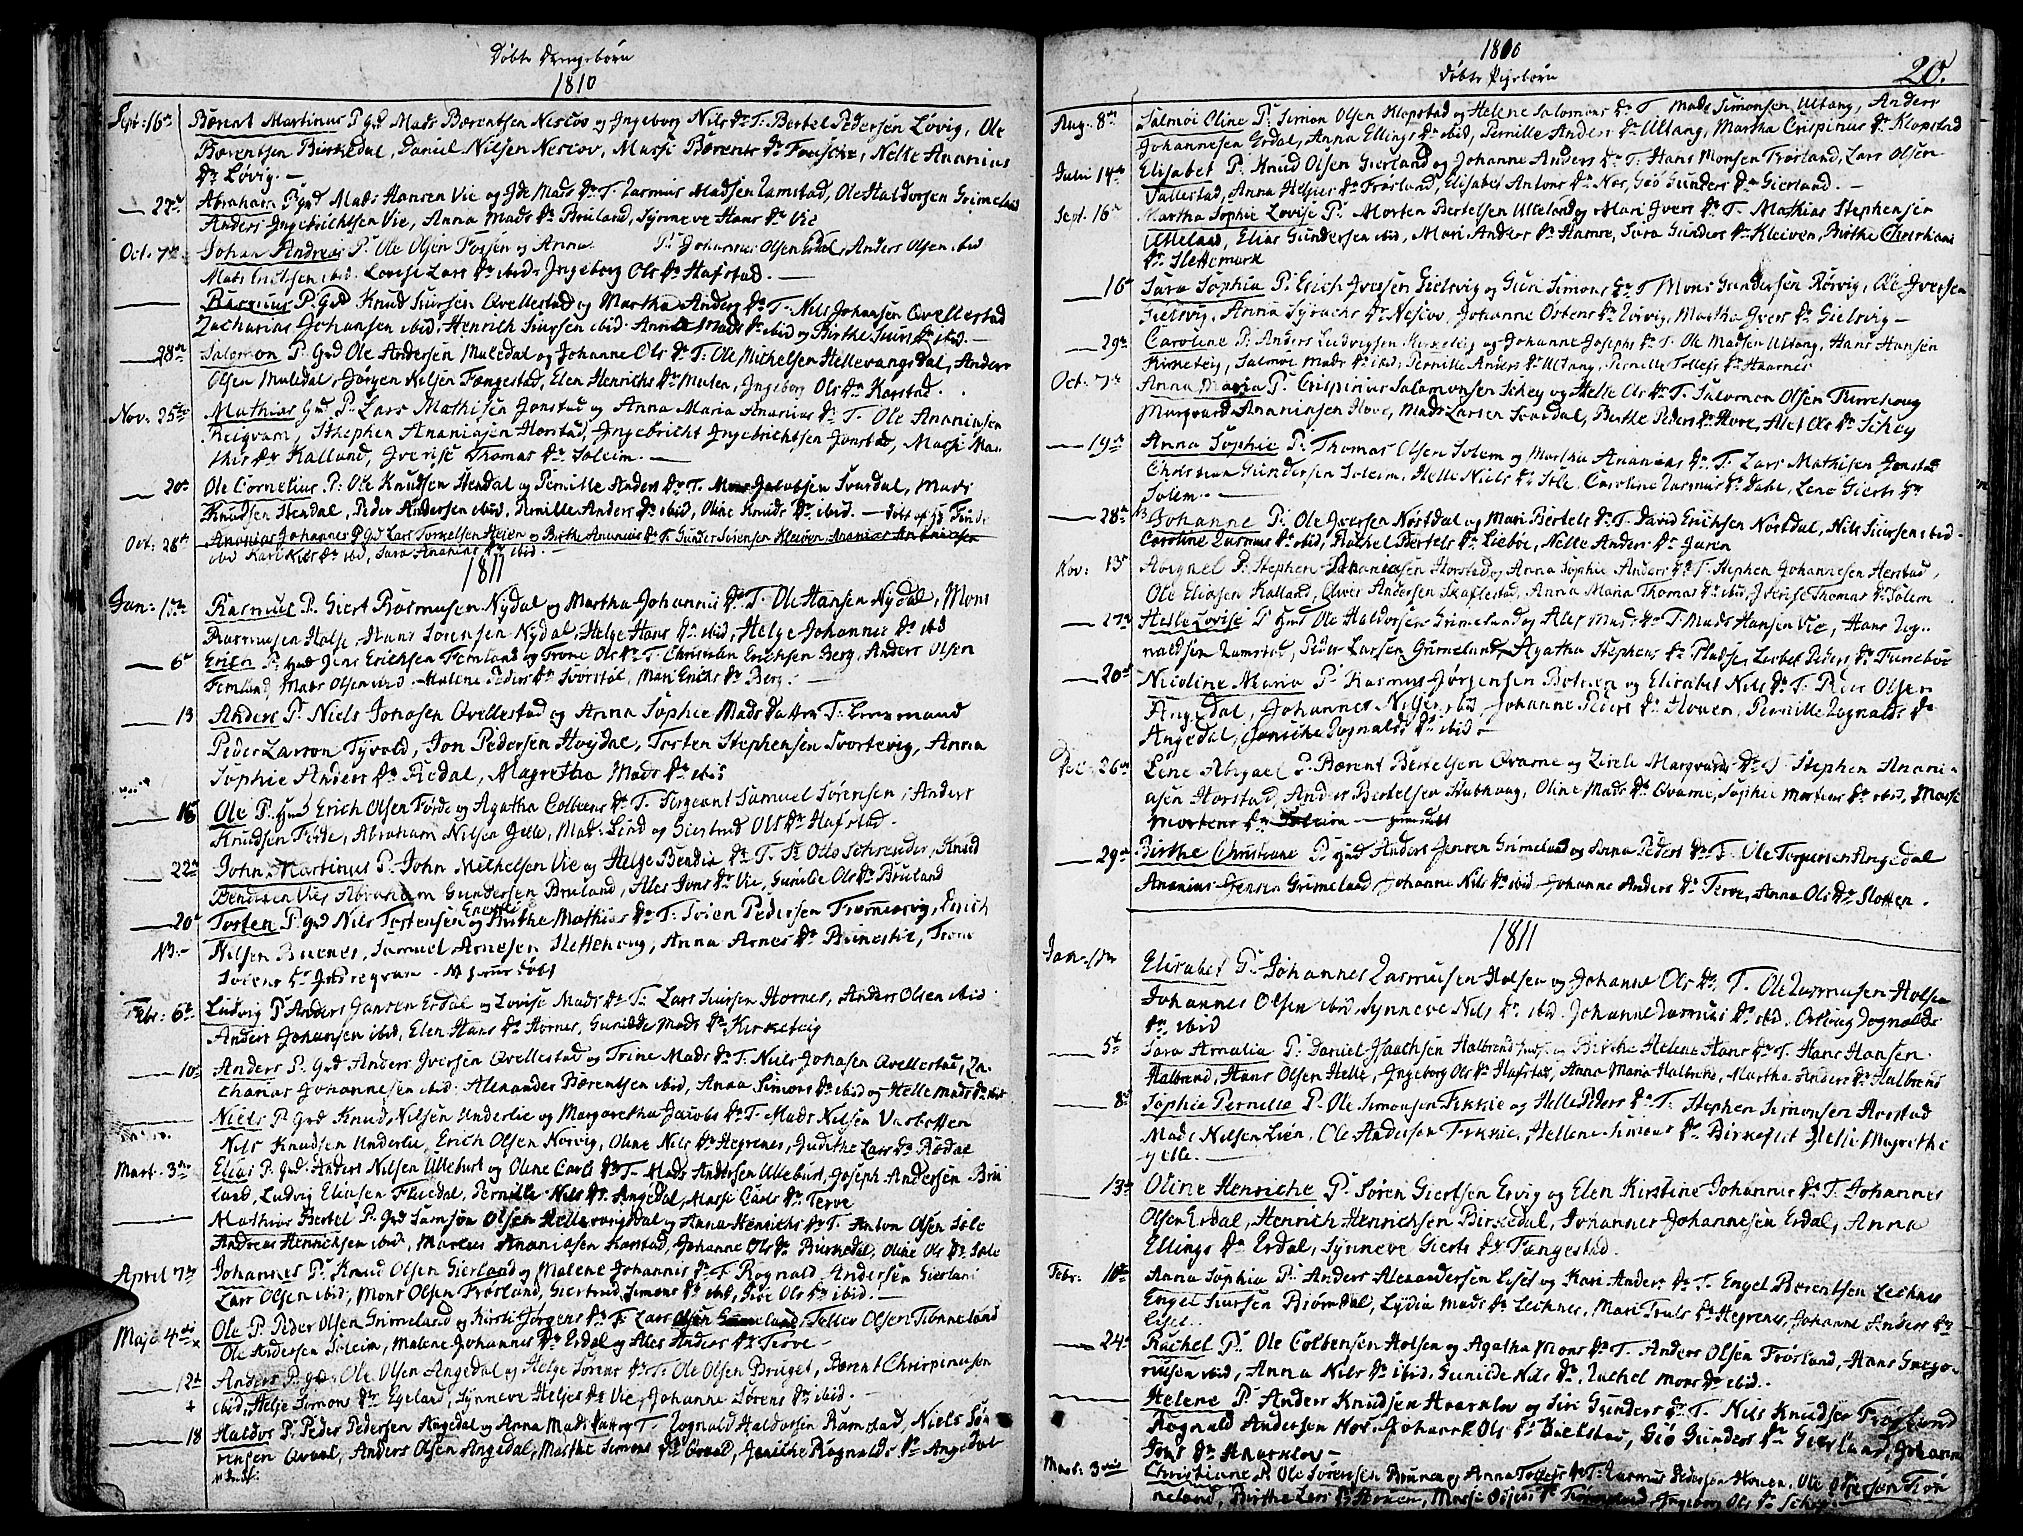 Døbte Drengebørn
1810
Sept: 16de Bærent Martinus P. gvd Mads Bærentsen Nescov og Ingeborg Nils Dr. T. Bertel Pedersen Løvig, Ole
Bærentsen Birkedal, Daniel Nilsen Nescov, Massi Bærents Dr. Nelle Ananias
Dr. Løvig. —
— 23de Abraham P. gvd Mads Hansen Vie og Ide Mads Dr. T. Rasmus Madsen Ramstad, Ole Haldorsen Grimeland
Anders Ingebrichtsen Vie, Anna Mads Dr. Bruland, Synneve Hans Dr. Vie
Oct. 7de Johan Andreas P. Ole Olsen og Anna T. Johannes Olsen Erdal, Anders Olsen ibid
Mads Erichsen ibid. Lovise Lars Dr. ibid, Ingeborg Ols Dr. Hafstad. —
— Rasmus P. gvd Knud Siursen Qvellestad og Martha Anders Dr. T. Nils Johansen Qvellestad
Zacharias Johansen ibid, Henrich Siursen ibid. Anne Mads Dr. ibid og Birthe Siurs Dr. ibid. —
— 28de Salomon P. gvd Ole Andersen Muledal og Johanne Ols Dr. T. Ole Michelsen Hellevangsdal, Anders
Olsen Muledal, Jørgen Nilsen Fangestad, Elen Henrichs Dr. Mulen, Ingeborg Ols Dr. Karstad.
Nov: 25de Mathias gvd P. Lars Mathisen Jonstad og Anna Maria Ananias Dr. T. Ole Ananiasen
Reigvam, Sthephen Ananiasen Horstad, Ingebricht Ingebrichtsen Jonstad, Massi Ma-
this Dr. Kalland, Iverise Thomas Dr. Soleim. —
— 20de Ole Cornelius P. Ole Knudsen Hendal og Pernille Anders Dr. T. Mons Jacobsen Svardal, Mads
Knudsen Hendal, Peder Andersen ibid, Pernille Anders Dr. ibid, Oline Knuds Dr. ibid. —
Oct: 28de Ananias P. gvd Lars Torkelsen Heien og Birthe Ananias Dr. T. Gunder Sørensen Kleiven Ananias Andersen
ibid Kari Nils Dr. ibid, Sara Ananias Dr. ibid. —
1811
Jan: 1de Rasmus P. Giert Rasmusen Nydal og Martha Johannis Dr. T. Ole Hansen Nydal, Mons
Rasmusen Holse, Hans Sørensen Nydal, Helge Hans Dr. ibid, Helge Johannes Dr. ibid
— 6de Erich P. gvd Jens Erichsen Femland og Trone Ols Dr. T. Christian Erichsen Berg, Anders Olsen
Femland, Mads Olsen ibid. Malene Peders Dr. Svorstøl, Mari Erichs Dr. Berg. —
— 13 Anders P. Niels Jonasen Qvellestad og Anna Sophie Mads Datter T.
Peder Larson Tyvold, Jon Pedersen Høydal, Torsten Stephensen Svortevig, Anna
Sophie Anders Dr. Redal, Magretha Mads Dr. ibid
— 16 Ole P. gvd Erich Olsen Førde og Agatha Colbens Dr. T. Sergeant Samuel Sørensen, Anders
Knudsen Førde, Abraham Nilsen Jelle, Mad. Lind og Giertrud Ols Dr. Hafstad.
— 22de John Martinus P. John Michelsen Vie og Helge Bendix Dr. T. Sr Otto Schreuder, Knud
Bendixen Vie, Abraham Gundersen Bruland, Ales Jons Dr. Vie, Gunilde Ols Dr. Bruland
— 20de Torsten P. gvd Nils Torstensen og Birthe Mathias Dr. T. Svien Pedersen Trommevig, Erich
NB: — Nilsen Buenes, Samuel Arnesen Slettehoug, Anna Arnes Dr. Trone
Sviens Dr. Indregvam
Febr: 6de Ludvig P. Anders Jansen Erdal og Lovise Mads Dr. T. Lars Siursen Hornes, Anders Olsen ibid
Anders Johansen ibid, Elen Hans Dr. Hornes, Gunilde Mads Dr. Kirketeig
— 10de Anders P. gvd Anders Iversen Qvellestad og Trine Mads Dr. T. Niels Johasen Qvellestad, Za-
charias Johannesen ibid. Alexander Bærentsen ibid, Anna Simons Dr. ibid og Helle Mads Dr. ibid
— Niels P. gvd Knud Nilsen Underlie og Margaretha Jacobs Dr. T. Mads Nilsen Vasbotten
Nils Knudsen Underlie, Erich Olsen Norvig, Oline Nils Dr. Hegrenes, Judithe Lars Dr. Rædal
Mart. 3de Elias P. gvd Anders Nilsen Ulleburst og Oline Carls Dr. T. Mads Andersen Ulleburst, Joseph Andersen Bru
land, Ludvig Eliasen Fluedal, Pernille Nils Dr. Angedal, Massi Carls Dr. Terve
— Mathias Bertel P. gvd Samson Olsen Hellevangsdal og Anna Henrichs Dr. T. Anton Olsen Sole
Andreas Henrichsen ibid, Marius Ananiasen Karstad, Johanne Ols Dr. Birkedal, Oline Ols Dr. Sole
April 7de Johannes P. Knud Olsen Gierland og Malene Johannis Dr. T. Rognald Andersen Gierland
Lars Olsen ibid, Mons Olsen Frøsland, Giertrud Simons Dr. ibid, Sire Ols Dr. ibid. —
Maji 4de Ole P. Peder Olsen Grimeland og Kirsti Jørgens Dr. T. Lars Olsen Grimeland, Tollev Olsen Tønneland
Ole Andersen Soleim, Malene Johannes Dr. Erdal og Ales Anders Dr. Terve —
— 12te Anders P. gvd Ole Olsen Angedal og Helge Sørens Dr. T. Ole Olsen Bruget, Bærent Chrispinusen
ibid, Helje Simons Dr. Egeland, Synneve Heljes Dr. Vie, Johanne Sørens Dr. ibid. —
— 18 Haldor P. Peder Pedersen Angedal og Anna Mads Datter T. Rognald Haldorsen Ramstad, Niels Søf
rensen Qvaal, Anders Olsen Angedal, Marthe Simons Dr. Qvaal, Jenikke Rognalds Dr. Angedal
1810
Døbte Pigebørn
20.
Aug. 8de Salmøi Oline P. Simon Olsen Klopstad og Helene Salomons Dr. T. Mads Simonsen Ultang, Anders
Johannesen Erdal, Anna Ellings Dr. ibid, Pernille Anders Dr. Ultang, Martha Crispinus Dr. Klopstad
Julii 14de Elisabet P. Knud Olsen Gierland og Johanne Anders Dr. T. Hans Monsen Frøsland, Lars Olsen
Vallestad, Anna Heljes Dr. Frøsland, Elisabet Antons Dr. Nor, Giø Gunders Dr. Gierland. —
Sept. 16de Martha Sophie Lovise P. Morten Bertelsen Ulleland og Mari Ivers Dr. T. Mathias Stephensen
Ulleland, Elias Gundersen ibid, Mari Anders Dr. Hamre, Sara Gunders Dr. Kleiven, Birthe Christians
Dr. Slettemark
— 16de Sara Sophia P. Erich Iversen Gielsvig og Guri Simons Dr. T. Mons Gundersen Rørvig, Ole Iversen
Gielsvig, Anna Syrachs Dr. Nescov, Johanne Ostens Dr. Løvig, Martha Ivers Dr. Gielsvig —
— 29de Caroline P. Anders Ludvigsen Kirketeig og Johanne Josephs Dr. T. Ole Madsen Ultang, Hans Hansen
Kirketeig, Salmøe Mads Dr. ibid, Pernille Anders Dr. Ultang, Pernille Tollefs Dr. Haarnes
Oct. 7de Anna Maria P. Crispinius Salomonsen Schey og Helle Ols Dr. T. Salomon Olsen Furrehoug
Marqvard Ananiasen Hove, Mads Larsen Svardal, Berthe Peders Dr. Hove, Alet Ols Dr. Schey
— 19de Anna Sophie P. Thomas Olsen Solem og Martha Ananias Dr. T. Lars Mathisen Jonstad
Christian Gundersen Soleim, Helle Niels Dr. Sole, Caroline Rasmus Dr. Dahe, Lene Gierts Dr.
Solem. —
— 28de Johanne P. Ole Iversen Nøstdal og Mari Bertels Dr. T. David Erichsen Nøstdal, Nils Siursen ibid.
Caroline Rasmus Dr. ibid, Rachel Bertels Dr. Lieboe, Nelle Anders Dr. Juren
Nov: 13de Avignel P. Stephen Ananiasen Horstad og Anna Sophie Anders Dr. T. Stephen Johannesen Herstad,
Ole Eliasen Kalland, Oliver Andersen Skaflestad, Anna Maria Thomas Dr. ibid, Iverise Thomas Dr. Solem
— 27de Helle Lovise P. gvd Ole Haldorsen Grimeland og Ales Mads Dr. T. Mads Hansen Vie, Hans Rog-
naldsen Ramstad, Peder Larsen Grimeland, Agatha Stephens Dr. Pladsen, Lisbet Peders Dr. Furreboe
— 20de Nicoline Maria P. Rasmus Jørgensen Botnen og Elisabet Nils Dr. T. Peder Olsen
Angedal, Johannes Nilsen ibid, Johanne Peders Dr. Howen, Pernille Rognalds Dr.
Angedal, Jenikke Rognalds Dr. ibid. —
Dec: 26de Lene Abigael P. Bærent Bertelsen Qvame og Zirele Marqvards Dr. T. Stephen Anani-
asen Horstad, Anders Bertelsen Stubhoug, Oline Mads Dr. Qvame, Sophie Mortens Dr. ibid, Massi
Mortens Dr. Soleim —
— 29de Birthe Christiane P. gvd Anders Jensen Grimeland og Anna Peders Dr. T. Ole Torgersen Angedal
Ananias Jensen Grimeland, Johanne Nils Dr. ibid. Johanne Anders Dr. Terve, Anna Ols Dr. Slotten.
1811
Jan. 1de Elisabet P. Johannes Rasmusen Holsen og Johanne Ols Dr. T. Ole Rasmusen Holsen
Johannes Olsen ibid, Synneve Nils Dr. ibid. Johanne Rasmus Dr. ibid, Rognalds
Dr. ibid
— 5te Sara Amalia P. Daniel Isachsen Halbrend og Birthe Helene Hans Dr. T. Hans Hansen
Halbrend, Hans Olsen Helle, Ingeborg Ols Dr. Hafstad, Anna Maria Halbrend, Martha Anders Dr. Halbrend
— 8de Sophia Pernille P. Ole Simonsen Fekkie og Helle Peders Dr. T. Stephen Simonsen Horstad
Mads Nilsen Lien, Ole Andersen Fekkie, Hellene Simons Dr. Birkeflet Helle Magrethe
Jelle. —
— 13de Oline Henriche P. Søren Giertsen Ervig og Elen Kirstine Johannis Dr. T. Johannes
Olsen Erdal, Henrich Henrichsen Birkedal, Johannes Johannesen Erdal, Anna
Ellings Dr. Erdal, Synneve Gierts Dr. Fangestad.
Febr: 10de Anna Sophia P. Anders Alexandersen Liset og Kari Anders Dr. T. Engel Bærentsen Lechnes
Engel Siursen Biørndal, Lydia Mads Dr. Lechnes, Mari Truls Dr. Hegrenes, Johanne Anders Dr.
Liset.
— 24de Rachel P. Ole Colbensen Holsen og Agatha Mons Dr. T. Anders Olsen Frøsland, Hans Grego-
riusen ibid, Anna Nils Dr. ibid, Gunilde Nils Dr. Rachel Mons Dr. ibid.
— Helene P. Anders Knudsen Haarklov og Siri Gunders Dr. T. Nils Knudsen Frøsland
Rognald Andersen Nor, Johanne Ols Dr. Bielstad, Giø Gunders Dr. Gierland, Johanne
Jons Dr. Haarklov —
Mart: 3de Christiane P. Ole Sørensen Bruneg og Anna Tollefs Dr. T. Rasmus Pedersen Howen, Ole Olsen Tøn
neland, Birthe Lars Dr. Howen, Massi Dr. Tønneland, Ingeborg Ols Dr. Schey